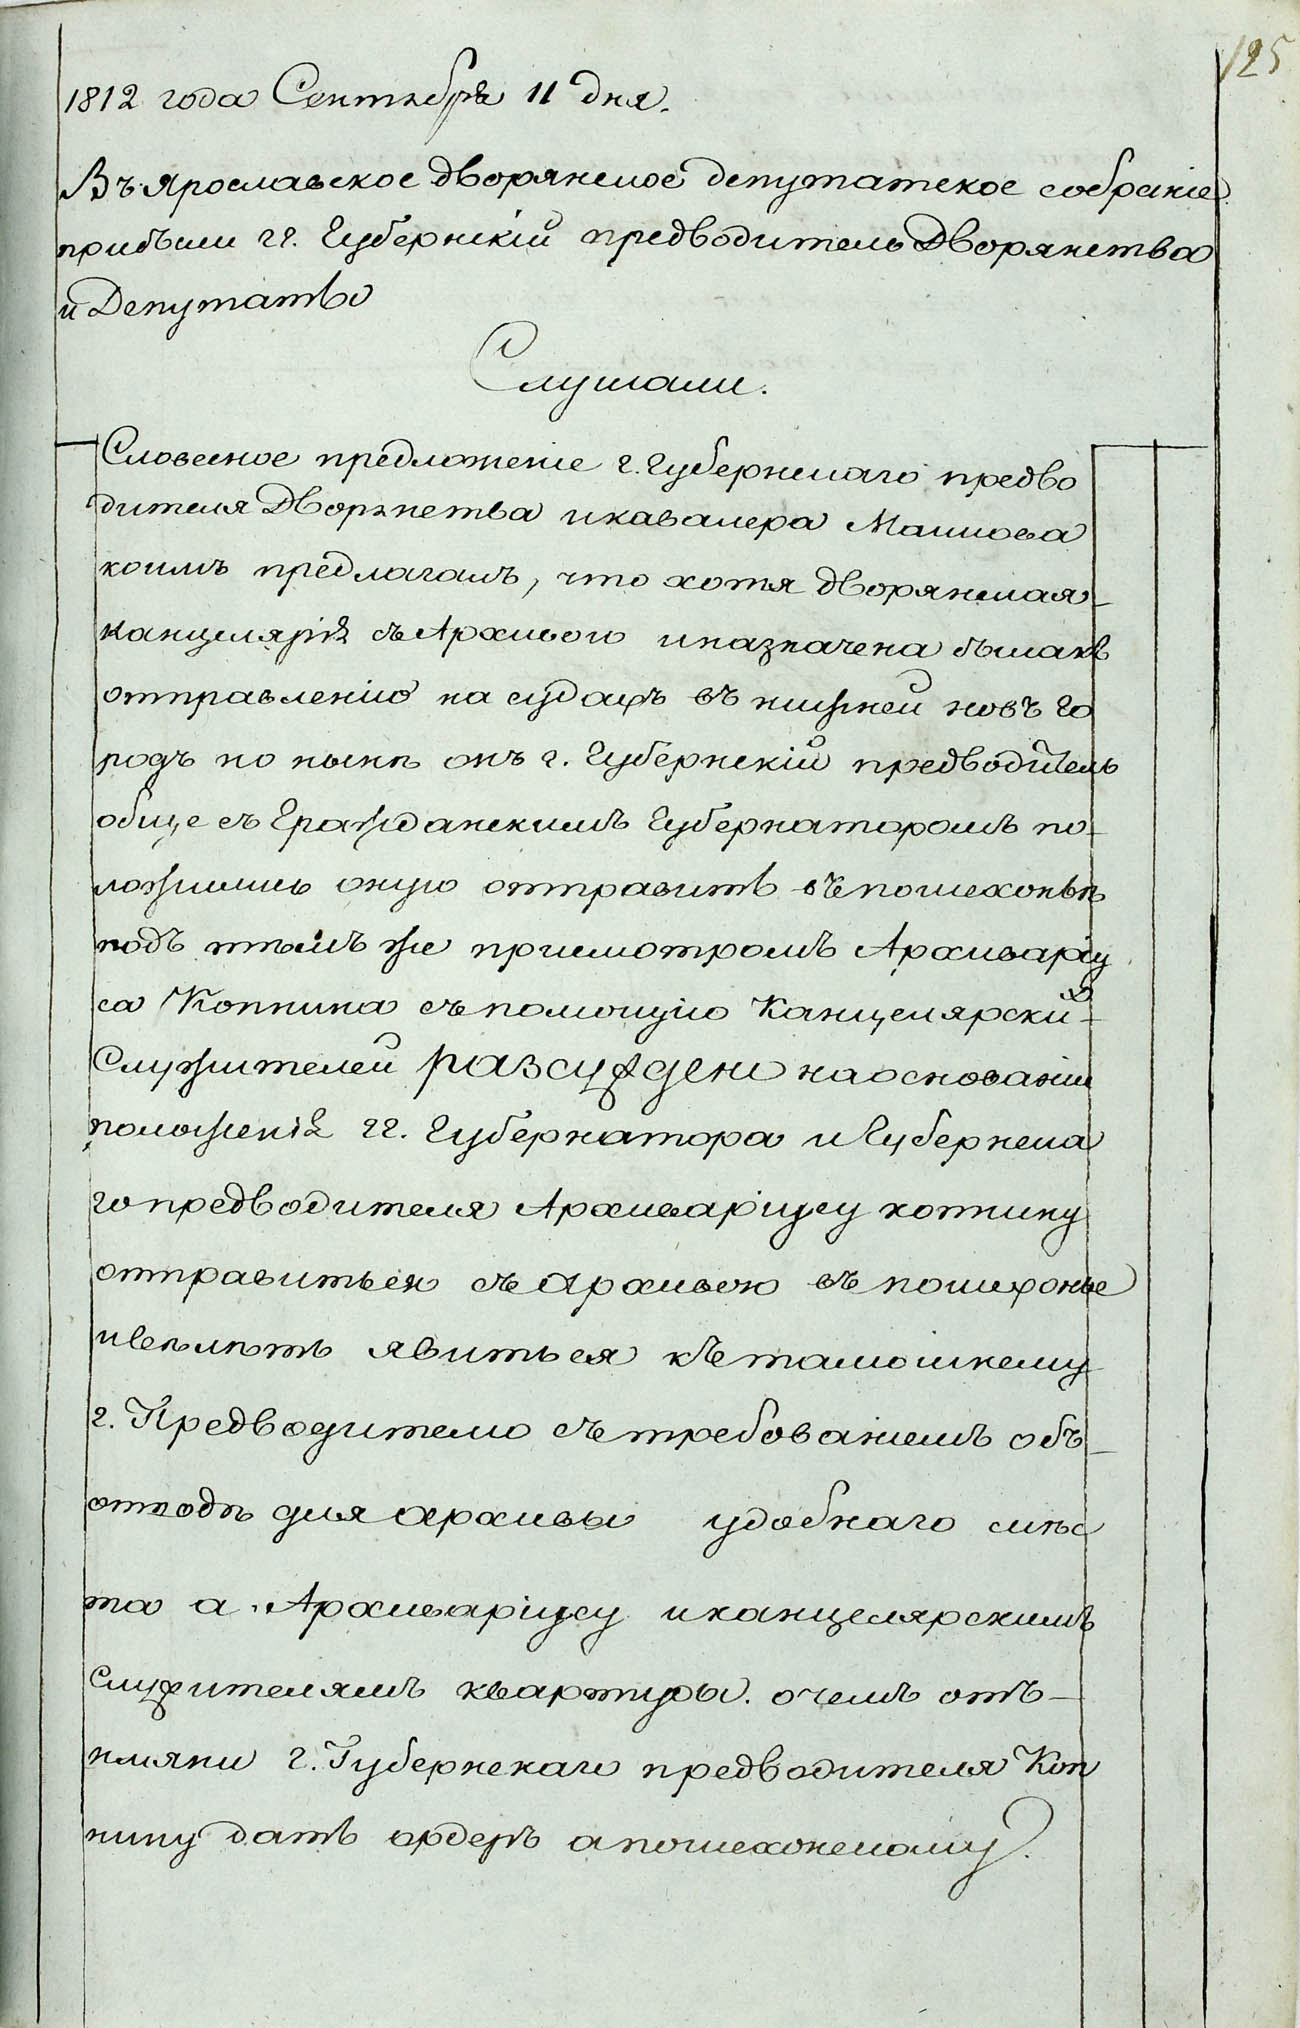 125
1812 года Сентября 11 дня.
Въ Ярославское дворянское депутатское собраніе
прибыли гг. Губернскій предводитель Дворянства
и Депутаты
Слушали.
Словесное предложеніе г. Губернскаго предво
дителя Дворянства икавалера Майкова
коимъ предлагалъ, что хотя дворянская
канцелярія съ Архивою иназначена была къ
отправленію на судахъ въ нижней новъ го
родъ но нынѣ онъ г. Губернскій предводитель
обще съ Гражданскимъ Губернаторомъ по-
ложились оную отправить въ пошехонье
подъ тѣмъ же присмотромъ Архиваріу
са Коптина съ помощію Канцелярских
Служителей разсуждено наоснованіи
положенія гг. Губернатора и Губернска
го предводителя Архиваріусу коптину
отправиться съ архивою въ пошехонье
ивелѣть явиться къ тамошнему
г. Предводителю съ требованіемъ объ
отводѣ для архивы удобнаго мѣс
та а Архиваріусу иканцелярскимъ
служителямъ квартиры. очемъ отъ
имяни г. Губернскаго предводителя Коп
тину дать ордеръ апошехонскому.